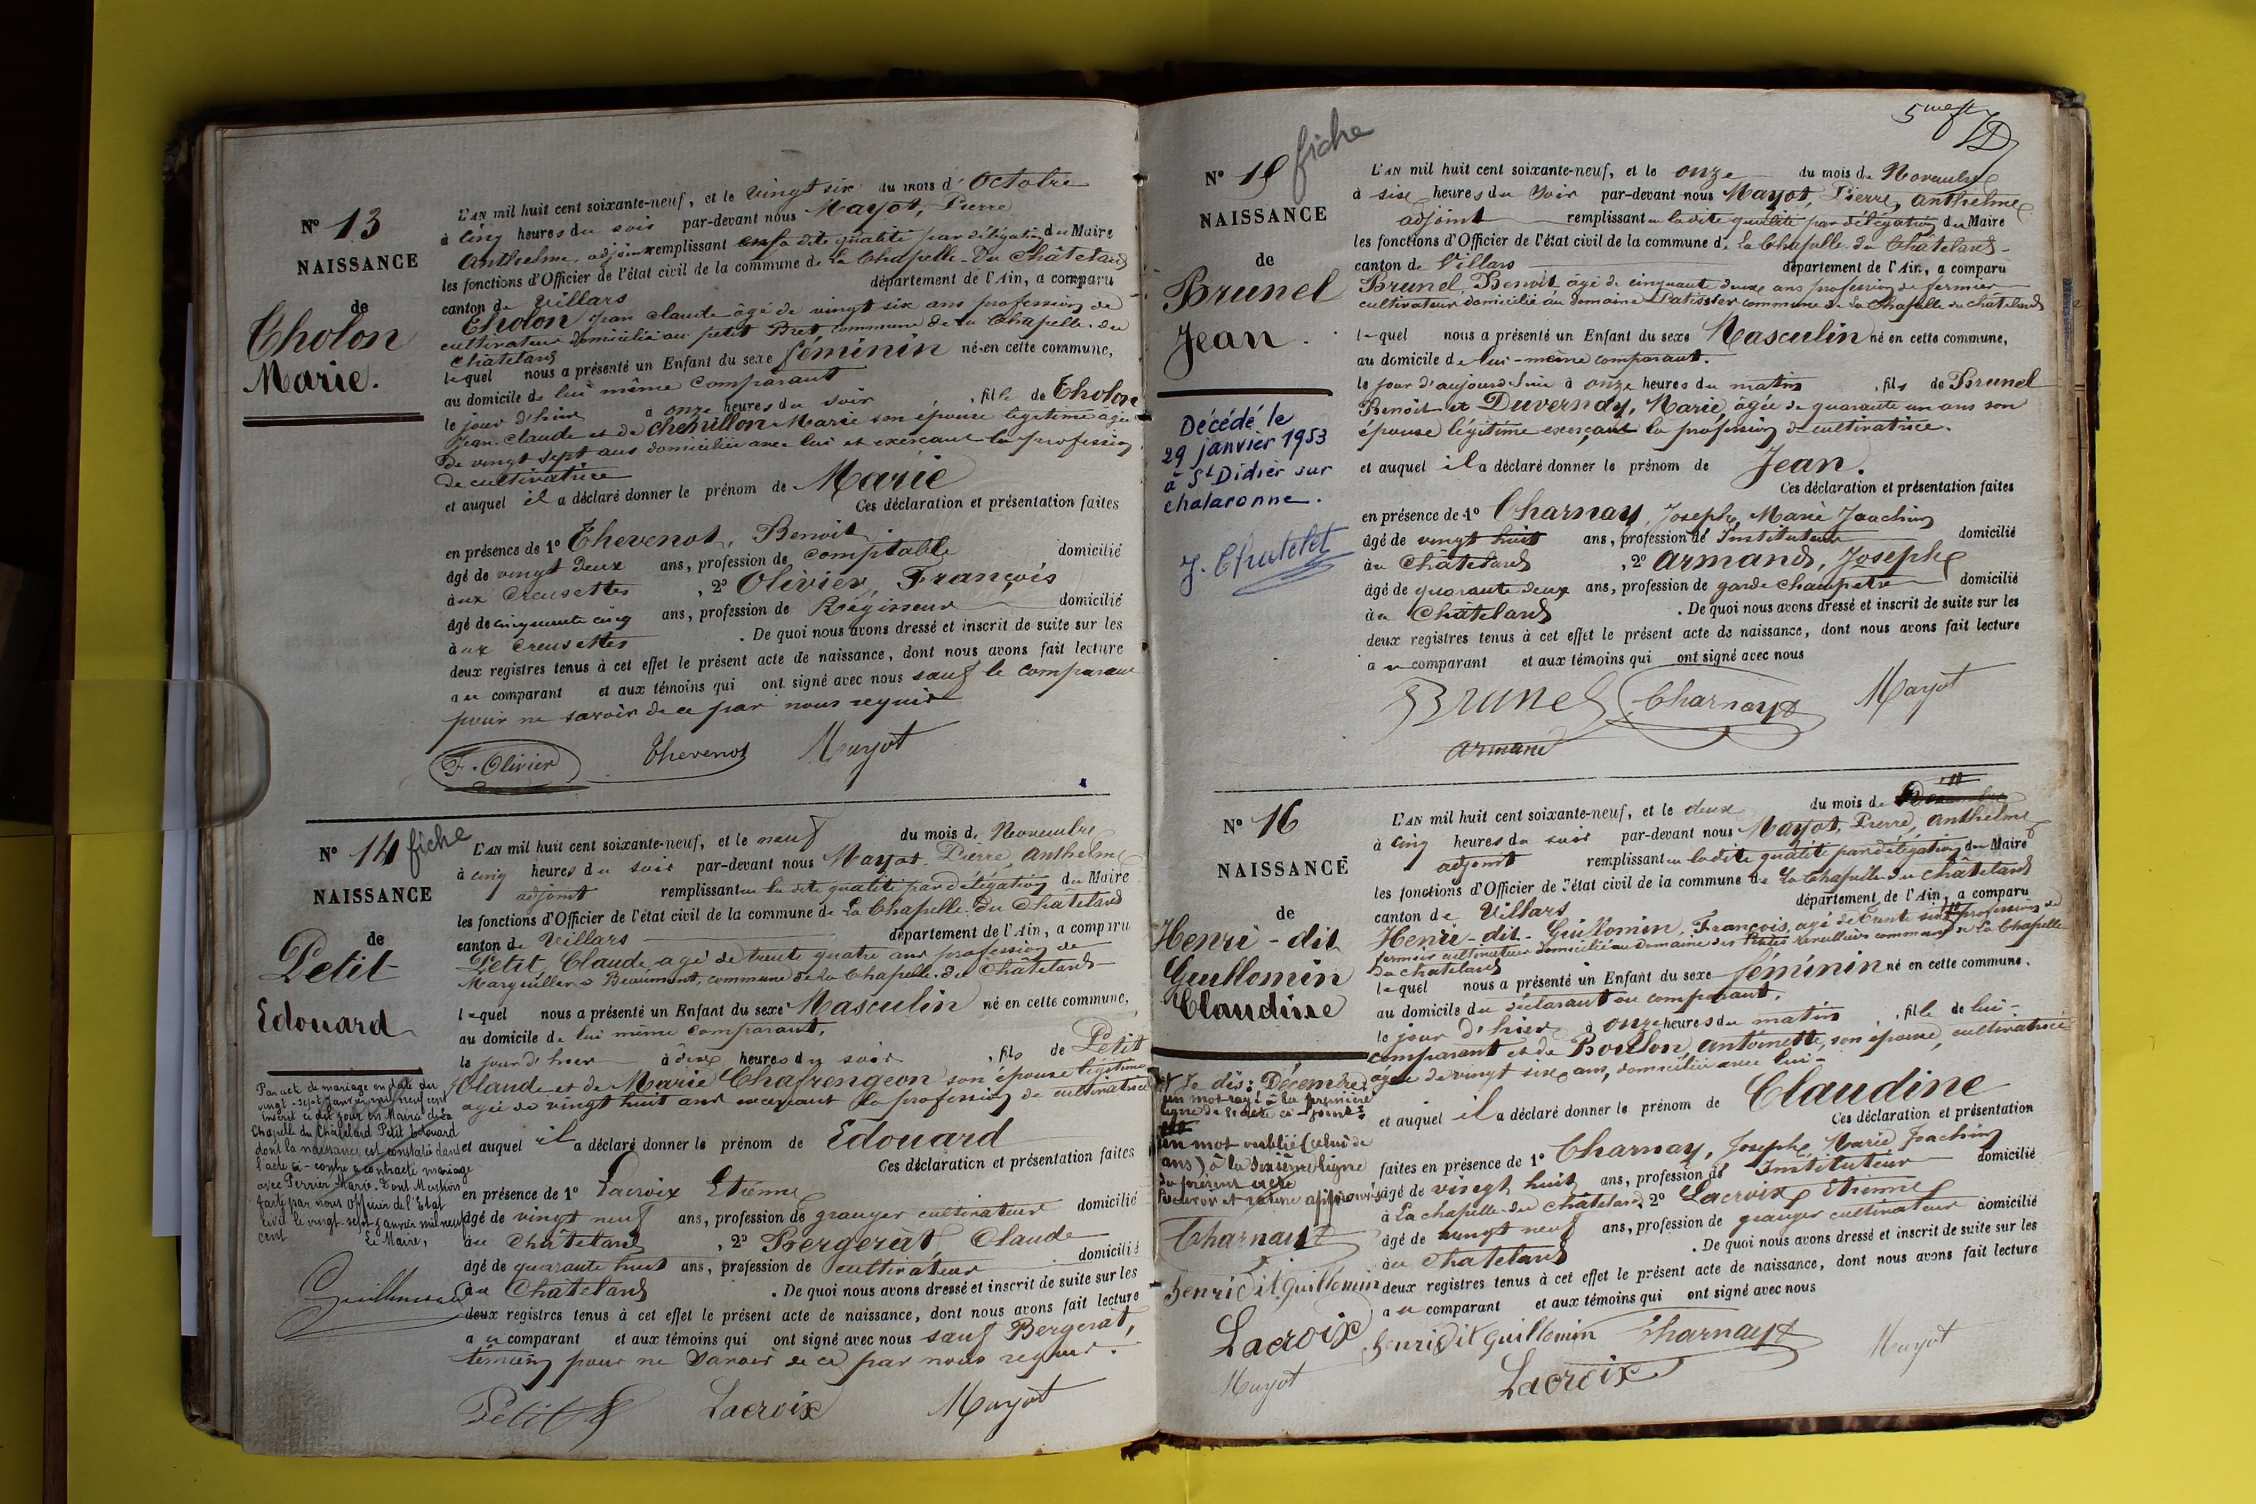 N° 13
NAISSANCE
de
Cholon
Marie.
L'AN mil huit cent soixante-neuf, et le vingt six du mois d' Octobre
à cinq heures du soir par-devant nous Mayot, Pierre
Anthelme, adjoint remplissant en sa dite qualité par délégation du Maire
les fonctions d'Officier de l'état civil de la commune de La Chapelle-du Châtelard
canton de Villars département de l'Ain, a comparu
Cholon Jean claude âgé de vingt six ans profession de
cultivateur domicilié au petit Bret commune de la Chapelle-du
Châtelard
lequel nous a présenté un Enfant du sexe féminin né en cette commune,
au domicile de lui même comparant
le jour d'hier à onze heures du soir , fille de Cholon
Jean-claude et de Chenillon Marie son épouse légitime âgée
de vingt sept ans domiciliée avec lui et exerçant la profession
de cultivatrice
et auquel il a déclaré donner le prénom de Marie
Ces déclaration et présentation faites
en présence de 1° Thevenot, Benoit
âgé de vingt deux ans, profession de comptable domicilié
aux Creusettes , 2° Olivier, François
âgé de cinquante cinq ans, profession de Régisseur domicilié
aux Creusettes . De quoi nous avons dressé et inscrit de suite sur les
deux registres tenus à cet effet le présent acte de naissance, dont nous avons fait lecture
au comparant et aux témoins qui ont signé avec nous sauf le comparant
pour ne savoir de ce par nous requis
F. Olivier Thevenot Mayot
N° 14 fiche
NAISSANCE
de
Petit
Edouard
L'AN mil huit cent soixante-neuf, et le neuf du mois de Novembre
à cinq heures du soir par-devant nous Mayot, Pierre, Anthelme
adjoint remplissant en la dite qualité par délégation du Maire
les fonctions d'Officier de l'état civil de la commune de La Chapelle-du Châtelard
canton de Villars département de l'Ain, a comparu
Petit, Claude agé de trente quatre ans profession de
Marguiller à Beaumont, commune de la Chapelle-du-Châtelard
lequel nous a présenté un Enfant du sexe Masculin né en cette commune,
au domicile de lui même comparant,
le jour d'hier à dix heures du soir , fils de Petit
Claude et de Marie Chafrengeon son épouse légitime
agée de vingt huit ans exerçant la profession de cultivatrice
et auquel il a déclaré donner le prénom de Edouard
Ces déclaration et présentation faites
en présence de 1° Lacroix Etienne
âgé de vingt neuf ans, profession de granger cultivateur domicilié
au Châtelard , 2° Bergerat, Claude
âgé de quarante huit ans, profession de cultivateur domicilié
au Châtelard . De quoi nous avons dressé et inscrit de suite sur les
deux registres tenus à cet effet le présent acte de naissance, dont nous avons fait lecture
au comparant et aux témoins qui ont signé avec nous sauf Bergerat,
témoin pour ne savoir de ce par nous requis.
Petit Lacroix Mayot
Par acte de mariage en date du
vingt-sept janvier mil neuf cent
inscrit ce dit jour en Mairie de la
Chapelle du Châtelard Petit Edouard
dont la naissance est constatée dans
l'acte ci-contre a contracté mariage
avec Perrier Marie. Dont Mention
faite par nous Officier de l'Etat
civil le vingt-sept janvier mil neuf
cent Le Maire,
5me ft
N° 15 fiche
NAISSANCE
de
Brunel
Jean.
Décédé le
29 janvier 1953
à St Didier sur
chalaronne.
J. Chatelet
L'AN mil huit cent soixante-neuf, et le onze du mois de Novembre
à six heures du soir par-devant nous Mayot, Pierre, Anthelme
adjoint remplissant en la dite qualité par délégation du Maire
les fonctions d'Officier de l'état civil de la commune de La Chapelle-du Châtelard
canton de Villars département de l'Ain, a comparu
Brunel, Benoît âgé de cinquante deux ans profession de fermier
cultivateur domicilié au domaine Batissier commune de la Chapelle du Chatelard
lequel nous a présenté un Enfant du sexe Masculin né en cette commune,
au domicile de lui-même comparant.
le jour d'aujourd'hui à onze heures du matin , fils de Brunel
Benoît et Duvernay, Marie, âgée de quarante un ans son
épouse légitime exerçant la profession de cultivatrice.
et auquel il a déclaré donner le prénom de Jean.
Ces déclaration et présentation faites
en présence de 1° Charnay, Joseph, Marie Joachim
âgé de vingt huit ans, profession de Instituteur domicilié
au Châtelard , 2° Armand, Joseph
âgé de quarante deux ans, profession de garde champêtre domicilié
au Châtelard . De quoi nous avons dressé et inscrit de suite sur les
deux registres tenus à cet effet le présent acte de naissance, dont nous avons fait lecture
au comparant et aux témoins qui ont signé avec nous
Brunel Charnay Mayot
Armand
N° 16
NAISSANCE
de
Henri-dit
Guillomin
Claudine
L'AN mil huit cent soixante-neuf, et le deux du mois de Décembre
à cinq heures du soir par-devant nous Mayot, Pierre, Anthelme
adjoint remplissant en la dite qualité par délégation du Maire
les fonctions d'Officier de l'état civil de la commune de La Chapelle-du Châtelard
canton de Villars département de l'Ain, a comparu
Henri-dit-Guillomin, François, agé de trente six profession de
fermier cultivateur domicilié au domaine des commune de La Chapelle
du chatelard
lequel nous a présenté un Enfant du sexe féminin né en cette commune.
au domicile du déclarant ou comparant,
le jour d'hier à onze heures du matin , fille de lui-
comparant et de Boulon, Antoinette, son épouse, cultivatrice
âgée de vingt six ans, domiciliée avec lui-
et auquel il a déclaré donner le prénom de Claudine
Ces déclaration et présentation
faites en présence de 1° Charnay, Joseph, Marie Joachim
âgé de vingt huit ans, profession de Instituteur domicilié
à La chapelle-du Châtelard, 2° Lacroix, Etienne
âgé de vingt neuf ans, profession de granger cultivateur domicilié
au Chatelard . De quoi nous avons dressé et inscrit de suite sur les
deux registres tenus à cet effet le présent acte de naissance, dont nous avons fait lecture
au comparant et aux témoins qui ont signé avec nous
henri dit guillomin Charnay Mayot
Lacroix
Je dis: Décembre,
un mot rayé à la première
ligne de l'acte ci-joint
un mot oublié (celui de
ans) à la sixième ligne
du présent acte
Renvoi et rature approuvés
Charnay
henri dit guillomin
Lacroix
Mayot